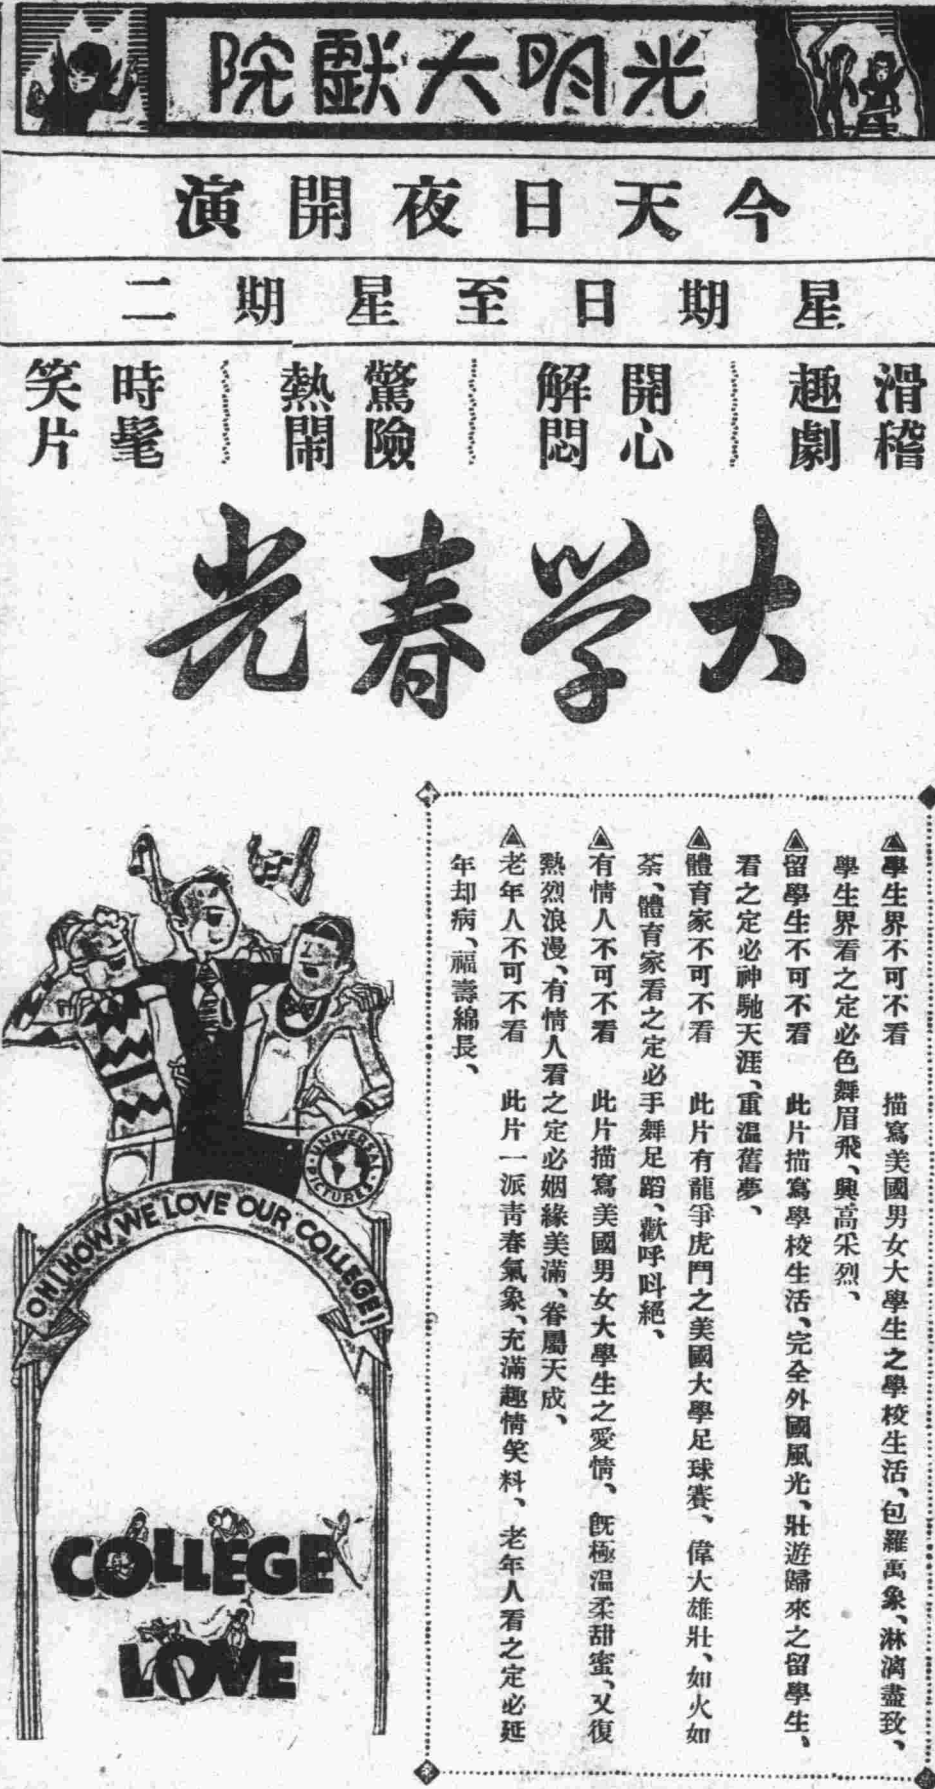 光明大戲院
今天日夜開演
星期日至星期二
滑稽趣劇
開心解悶
驚險熱鬧
時髦笑片
大学春光
▲學生界不可不看 描寫美國男女大學生之學校生活、包羅萬象、淋漓盡致、
學生界看之定必色舞眉飛、興高采烈、
▲留學生不可不看 此片描寫學校生活、完全外國風光、壯遊歸來之留學生、
看之定必神馳天涯、重溫舊夢、
▲體育家不可不看 此片有龍爭虎鬥之美國大學足球賽、偉大雄壯、如火如
荼、體育家看之定必手舞足蹈、歡呼呌絕、
▲有情人不可不看 此片描寫美國男女大學生之愛情、旣極溫柔甜蜜、又復
熱烈浪漫、有情人看之定必姻緣美滿、眷屬天成、
▲老年人不可不看 此片一派靑春氣象、充滿趣情笑料、老年人看之定必延
年却病、福壽綿長、
UNIVERSAL PICTURES
OH! HOW WE LOVE OUR COLLEGE!
COLLEGE
LOVE